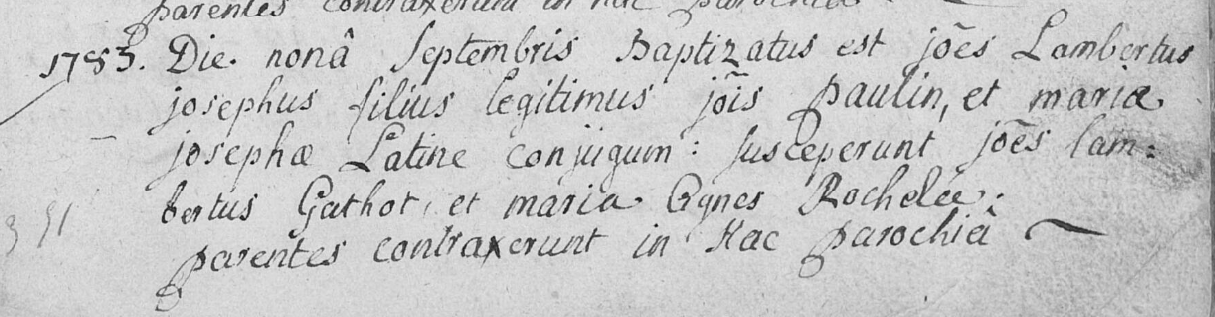 parentes contraxerunt in hac parochia
1783. Die nonâ Septembris Baptizatus est jōēs Lambertus
josephus filius legitimus jōis paulin, et mariæ
josephæ Latine conjugum : susceperunt jōēs lam=
bertus Gathot, et maria Agnes Rochelée.
parentes contraxerunt in hac parochiâ